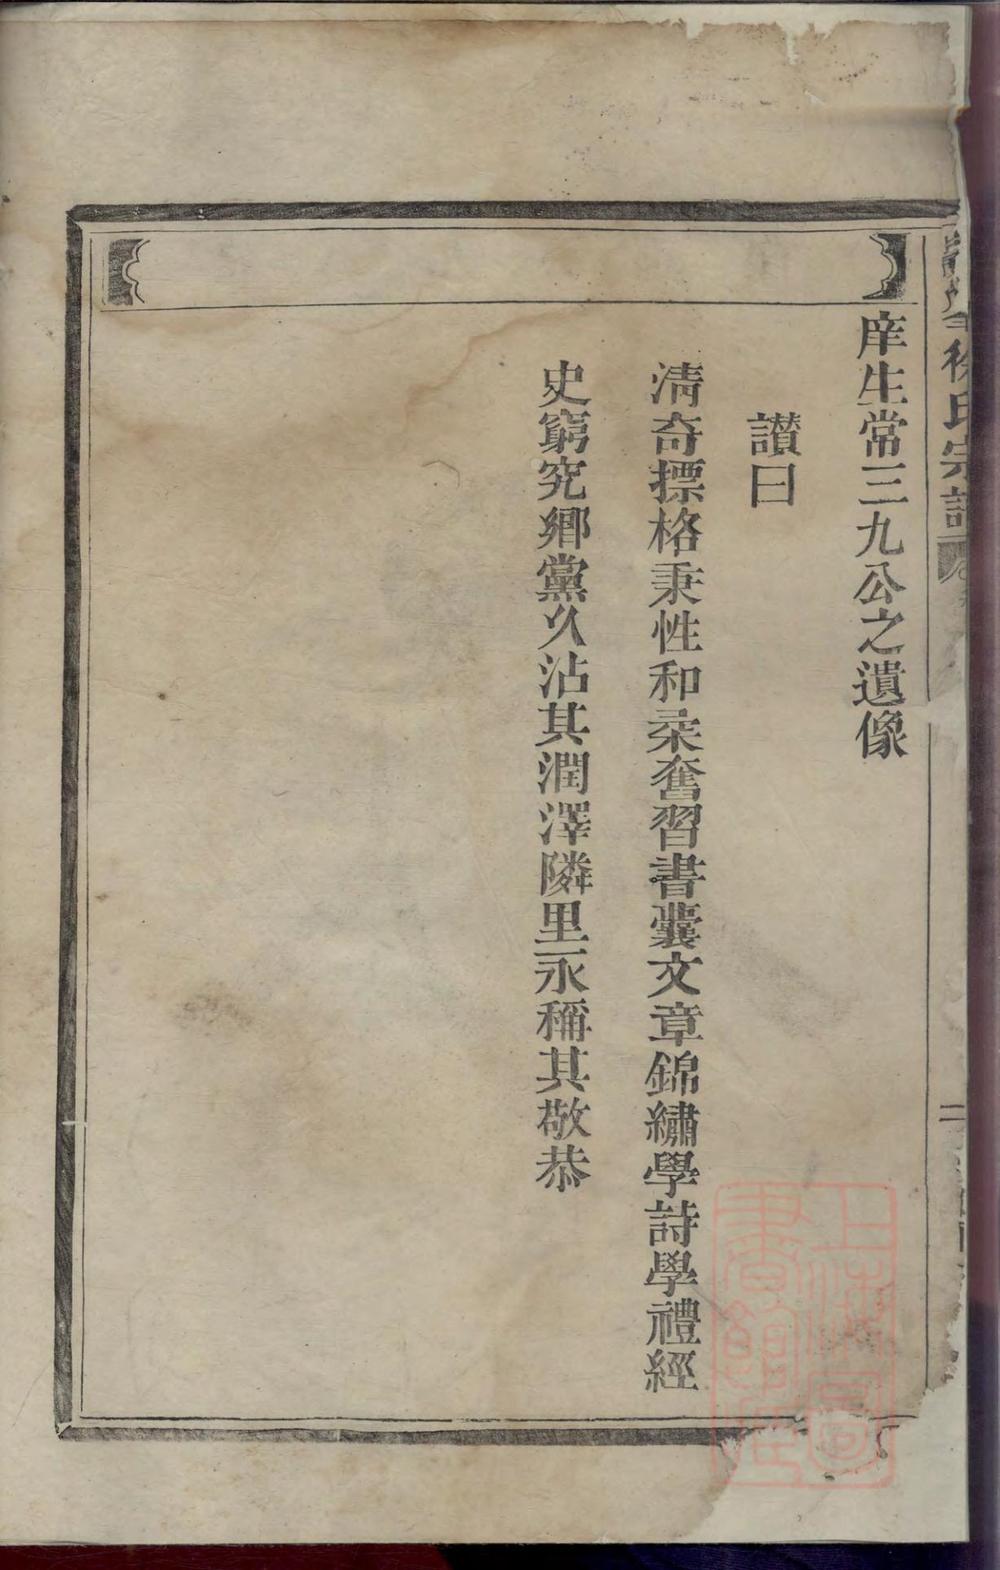 庠生常三九公之遺像
讃曰
清奇摽格秉性和柔奮習書囊文章錦繡學詩學禮經
史窮究鄉黨久沾其潤澤隣里永稱其敬恭
徐氏宗譜
二
上海圖書館藏